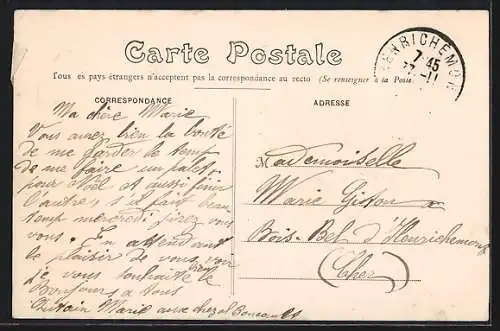 Carte Postale
Tous es pays étrangers n'acceptent pas la correspondance au recto (Se renseigner à la Poste
HENRICHEMONT
7-45
27 -11
CORRESPONDANCE
ADRESSE
Ma chère Marie
Vous aurez bien la bonté
de me garder le temp
de me faire un palet.
pour Noël et aussi finir
l'autre s'il fait beau
temp mercredi
vous. En attendant
le plaisir de vous voir
je vous souhaite bien le
Bonjours a tous
Marie chez
Mademoiselle
Marie a
Bois-Bel d'Henrichemont
(Cher)